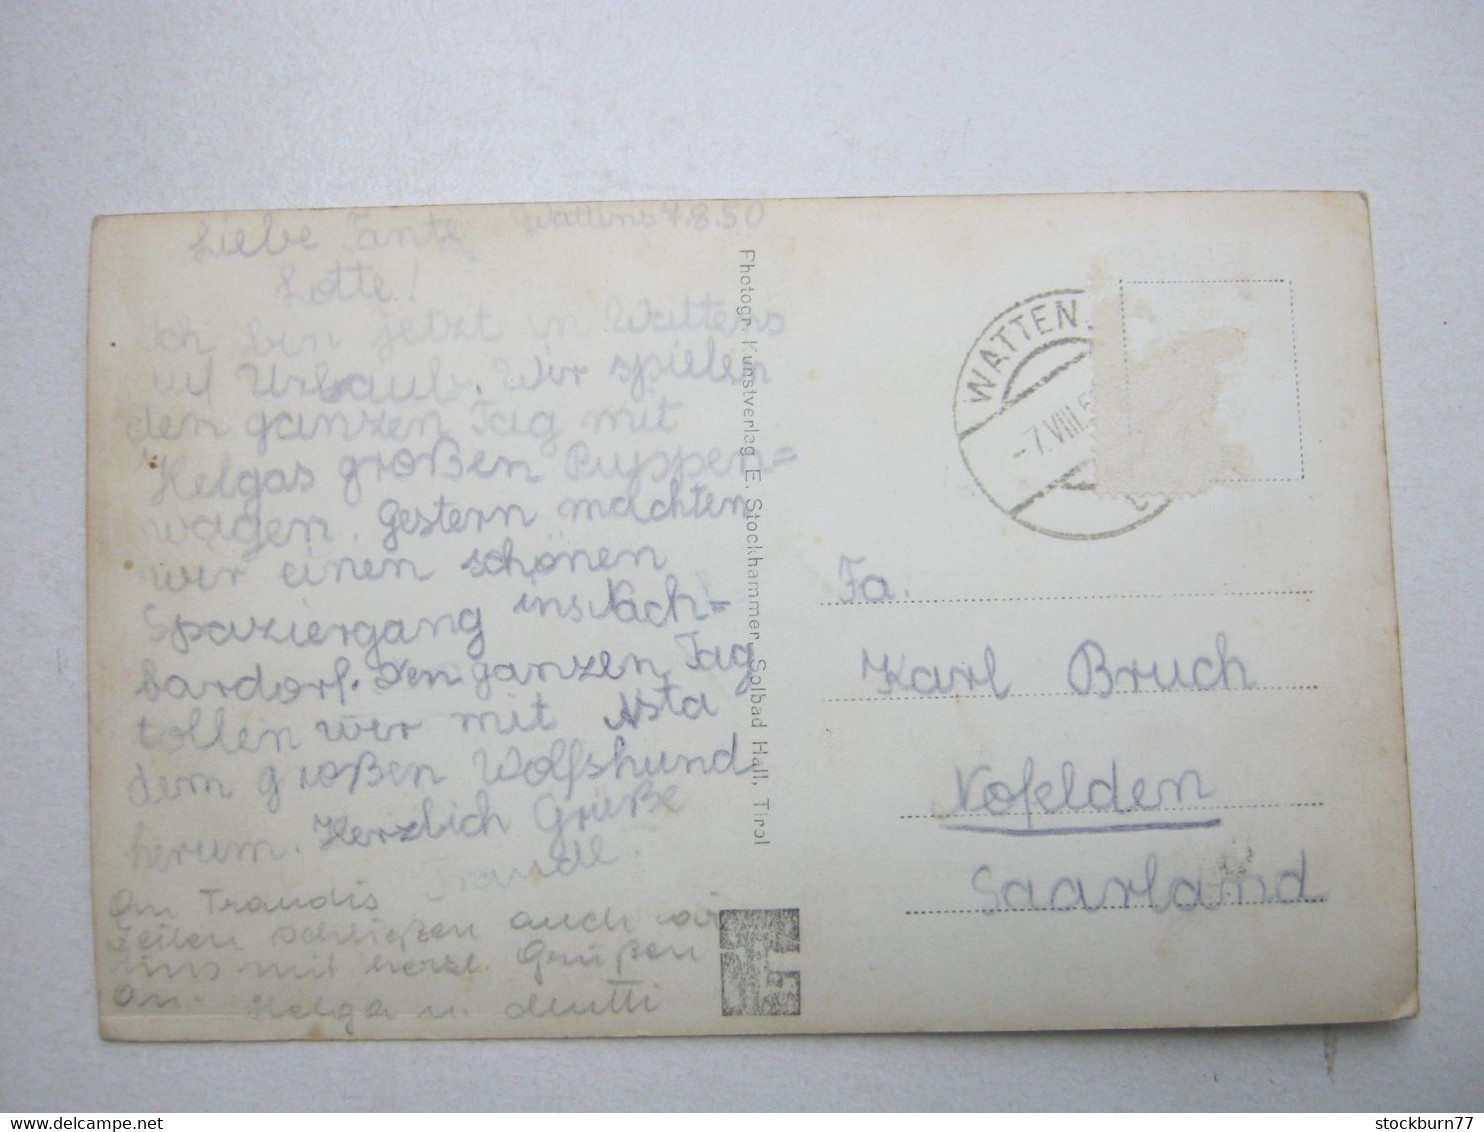 Wattens 7.8.50
Liebe Tante
Lotte!
Ich bin jetzt in Wattens
auf Urlaub. Wir spielen
den ganzen Tag mit
Helgas großen Puppen=
wagen. Gestern machten
wir einen schönen
Spaziergang ins Nach=
bardorf. Den ganzen Tag
tollen wir mit Asta
dem großen Wolfshund
herum. Herzlich Grüße
Traudl.
An Traudis
Zeilen schließen auch wir
uns mit herzl. Grüßen
an. Helga u. Mutti
Photogr. Kunstverlag E. Stockhammer, Solbad Hall, Tirol
WATTEN
-7.VIII.5
Fa.
Karl Bruch
Nofelden
Saarland
www.delcampe.net
stockburn77